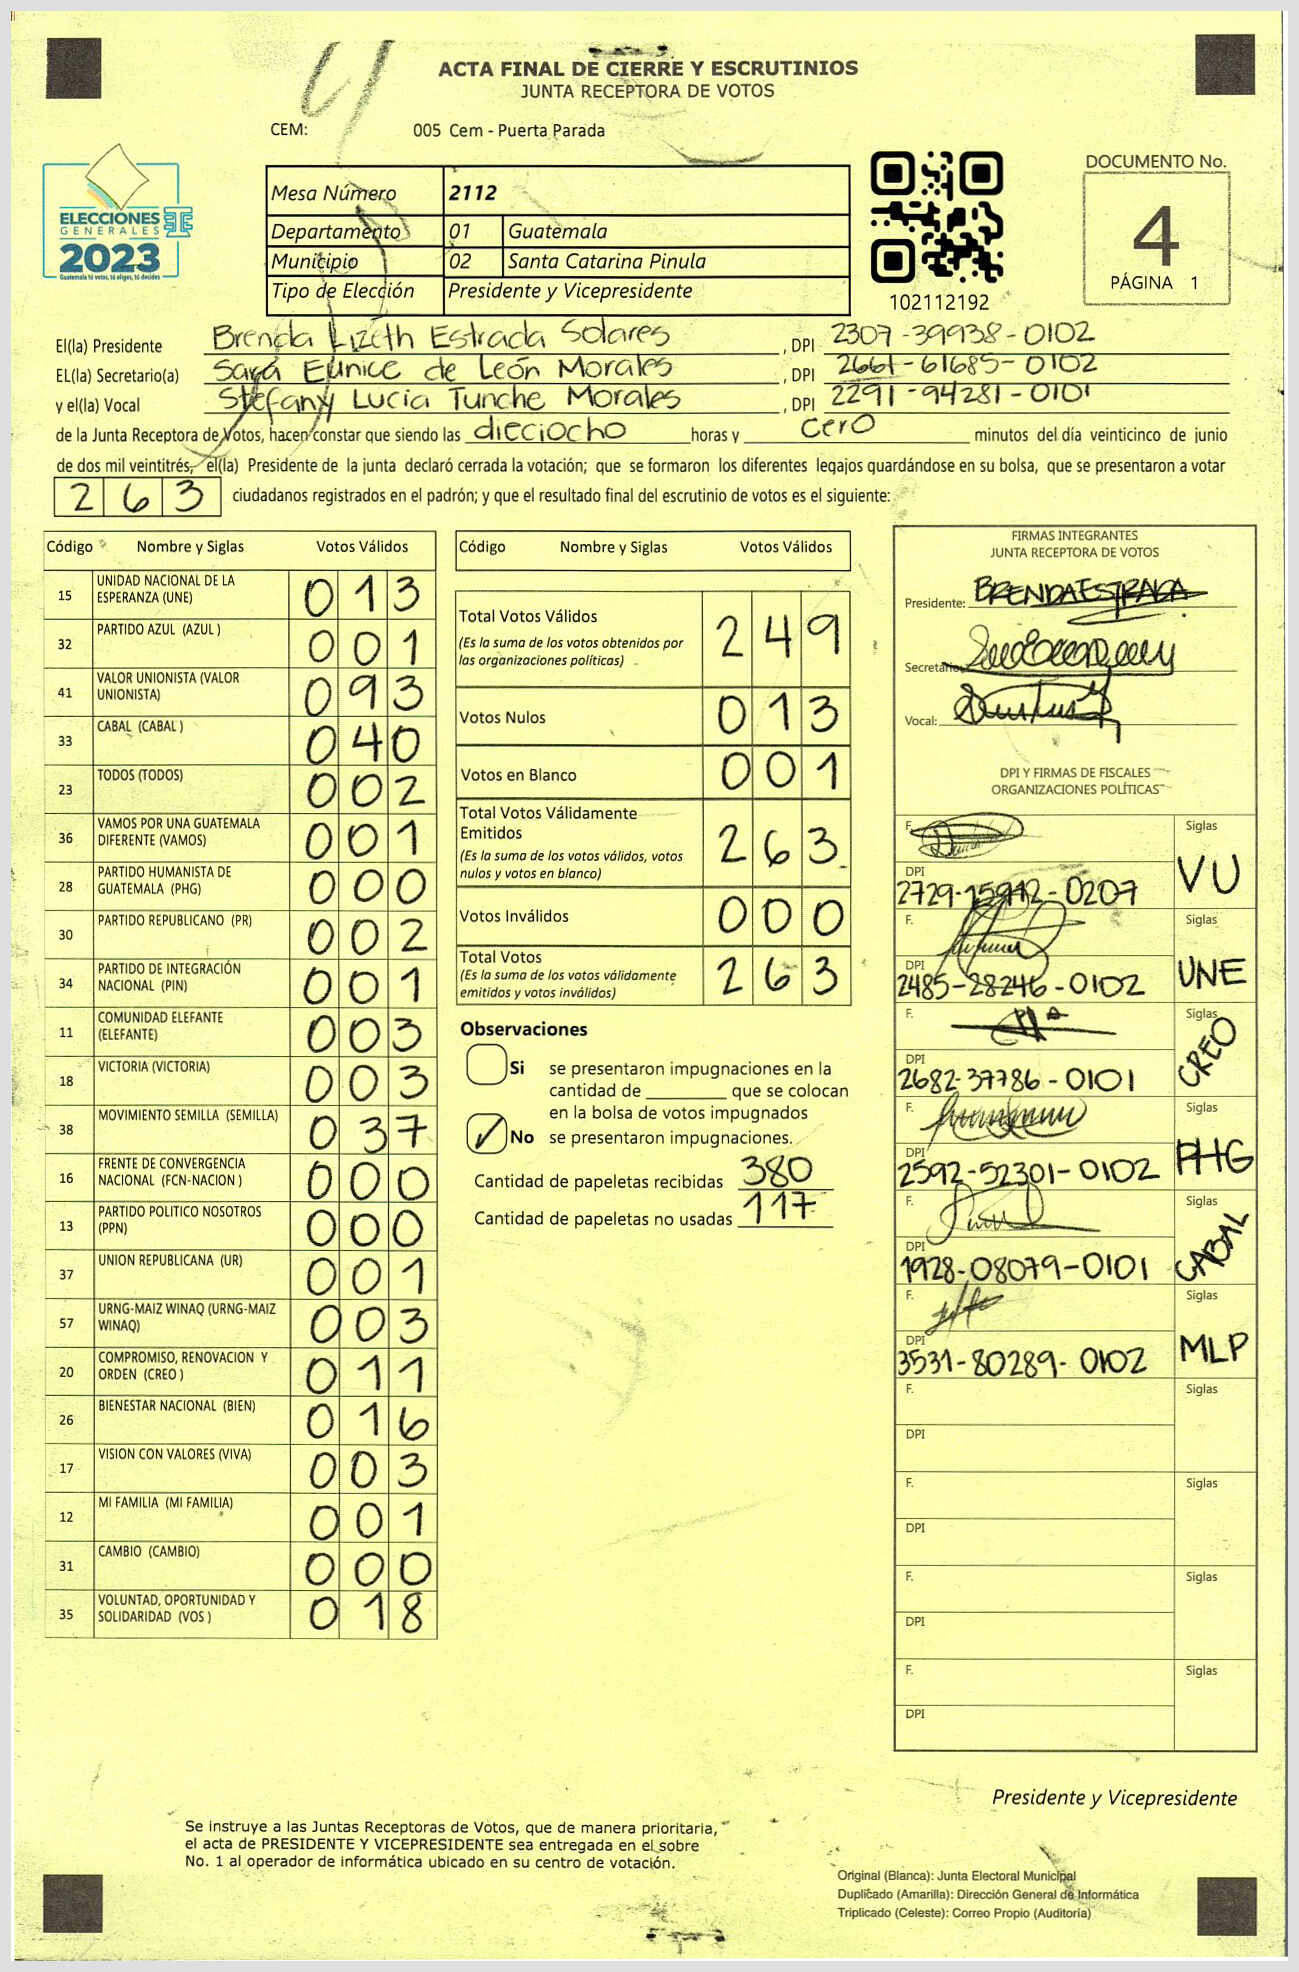 ACTA FINAL DE CIERRE Y ESCRUTINIOS
JUNTA RECEPTORA DE VOTOS
CEM: 005 Cem - Puerta Parada
ELECCIONES
GENERALES
2023
Guatemala tú votas, tú eliges, tú decides
Mesa Número 2112
Departamento 01 Guatemala
Municipio 02 Santa Catarina Pinula
Tipo de Elección Presidente y Vicepresidente
102112192
DOCUMENTO No.
4
PÁGINA 1
El(la) Presidente Brenda Lizeth Estrada Solares, DPI 2307-39938-0102
EL(la) Secretario(a) Sara Eunice de León Morales, DPI 2661-61685-0102
y el(la) Vocal Stefany Lucia Tunche Morales, DPI 2291-94281-0101
de la Junta Receptora de Votos, hacen constar que siendo las dieciocho horas y cero minutos del día veinticinco de junio
de dos mil veintitrés, el(la) Presidente de la junta declaró cerrada la votación; que se formaron los diferentes legajos guardándose en su bolsa, que se presentaron a votar
263 ciudadanos registrados en el padrón; y que el resultado final del escrutinio de votos es el siguiente:
Código Nombre y Siglas Votos Válidos
15 UNIDAD NACIONAL DE LA ESPERANZA (UNE) 013
32 PARTIDO AZUL (AZUL ) 001
41 VALOR UNIONISTA (VALOR UNIONISTA) 093
33 CABAL (CABAL ) 040
23 TODOS (TODOS) 002
36 VAMOS POR UNA GUATEMALA DIFERENTE (VAMOS) 001
28 PARTIDO HUMANISTA DE GUATEMALA (PHG) 000
30 PARTIDO REPUBLICANO (PR) 002
34 PARTIDO DE INTEGRACIÓN NACIONAL (PIN) 001
11 COMUNIDAD ELEFANTE (ELEFANTE) 003
18 VICTORIA (VICTORIA) 003
38 MOVIMIENTO SEMILLA (SEMILLA) 037
16 FRENTE DE CONVERGENCIA NACIONAL (FCN-NACION ) 000
13 PARTIDO POLITICO NOSOTROS (PPN) 000
37 UNION REPUBLICANA (UR) 001
57 URNG-MAIZ WINAQ (URNG-MAIZ WINAQ) 003
20 COMPROMISO, RENOVACION Y ORDEN (CREO ) 011
26 BIENESTAR NACIONAL (BIEN) 016
17 VISION CON VALORES (VIVA) 003
12 MI FAMILIA (MI FAMILIA) 001
31 CAMBIO (CAMBIO) 000
35 VOLUNTAD, OPORTUNIDAD Y SOLIDARIDAD (VOS ) 018
Código Nombre y Siglas Votos Válidos
Total Votos Válidos 249
(Es la suma de los votos obtenidos por
las organizaciones políticas)
Votos Nulos 013
Votos en Blanco 001
Total Votos Válidamente
Emitidos 263
(Es la suma de los votos válidos, votos
nulos y votos en blanco)
Votos Inválidos 000
Total Votos 263
(Es la suma de los votos válidamente
emitidos y votos inválidos)
Observaciones
Si se presentaron impugnaciones en la
cantidad de ________ que se colocan
en la bolsa de votos impugnados
No se presentaron impugnaciones.
Cantidad de papeletas recibidas 380
Cantidad de papeletas no usadas 117
FIRMAS INTEGRANTES
JUNTA RECEPTORA DE VOTOS
Presidente: BRENDA ESTRADA
Secretario:
Vocal:
DPI Y FIRMAS DE FISCALES
ORGANIZACIONES POLÍTICAS
F. Siglas
DPI 2729-15912-0207 VU
F. Siglas
DPI 2485-28246-0102 UNE
F. Siglas
DPI 2682-37786-0101 CREO
F. Siglas
DPI 2592-52301-0102 PHG
F. Siglas
DPI 1928-08079-0101 CABAL
F. Siglas
DPI 3531-80289-0102 MLP
F. Siglas
DPI
F. Siglas
DPI
F. Siglas
DPI
F. Siglas
DPI
Presidente y Vicepresidente
Se instruye a las Juntas Receptoras de Votos, que de manera prioritaria,
el acta de PRESIDENTE Y VICEPRESIDENTE sea entregada en el sobre
No. 1 al operador de informática ubicado en su centro de votación.
Original (Blanca): Junta Electoral Municipal
Duplicado (Amarilla): Dirección General de Informática
Triplicado (Celeste): Correo Propio (Auditoría)